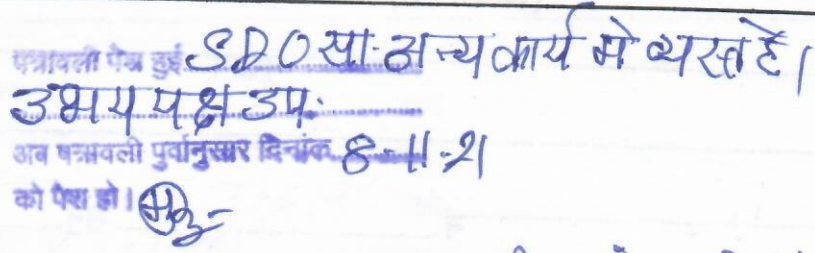 पत्रावली पेश हुई SDO सा. अन्य कार्य मे व्यस्त है।
उभय पक्ष उप.
अब पत्रावली पुर्वानुसार दिनांक 8-11-21
को पेश हो।